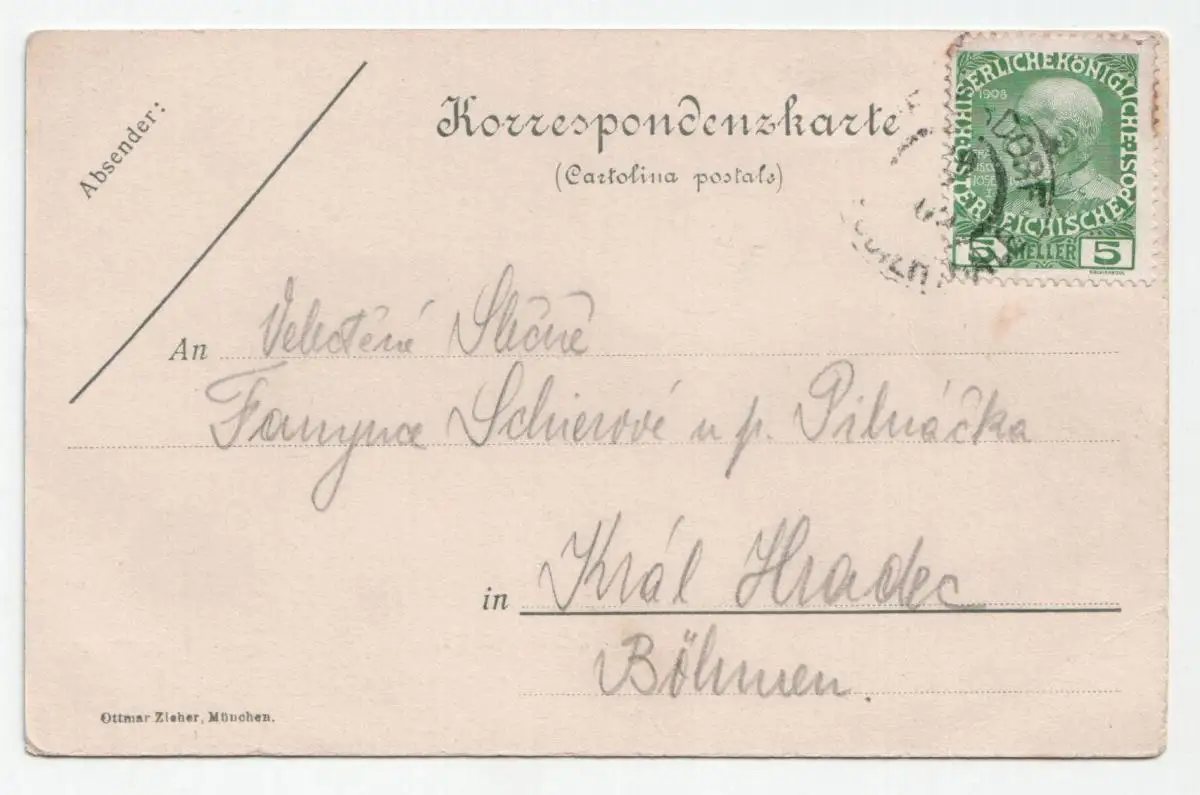 Absender:
Korrespondenzkarte
(Cartolina postale)
KAISERLICHEKÖNIGLICHE
ÖSTERREICHISCHEPOST
1908
5 HELLER 5
DORF
An Velectěné Slečně
Fanynce Schierové u p. Pilnáčka
in Král Hradec
Böhmen.
Ottmar Zieher, München.